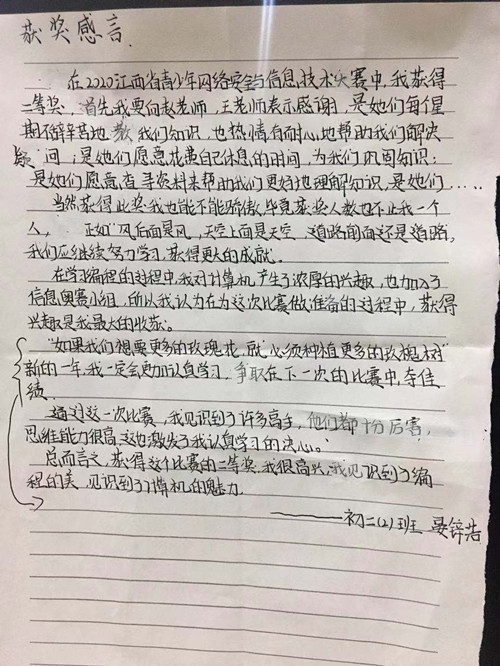 获奖感言.
在2020江西省青少年网络安全与信息技术大赛中,我获得
二等奖,首先我要向赵老师,王老师表示感谢,是她们每个星
期不辞辛苦地教我们知识,也热情自而耐心地帮助我们解决
疑问;是她们愿意花费自己休息的时间,为我们巩固知识;
是她们愿意查寻资料来帮助我们更好地理解知识,是她们.....
当然获得此奖我也能不能骄傲,毕竟获奖人数也不止我一个
人,正如"风后面是风,天空上面是天空,道路前面还是道路,
我们应继续努力学习,获得更大的成就。
在学习编程的过程中,我对计算机产生了浓厚的兴趣,也加入了
信息奥赛小组,所以我认为在为这次比赛做准备的过程中,获得
兴趣是我最大的收获。
"如果我们想要更多的玫瑰花,就必须种植更多的玫瑰树"
新的一年,我一定会更加认真学习,争取在下一次的比赛中,夺佳
绩.
通过这一次比赛,我见识到了许多高手,他们都十分厉害,
思维能力很高,这也激发了我认真学习的决心。
总而言之,获得这个比赛的二等奖,我很高兴,我见识到了编
程的美,见识到了计算机的魅力.
——初二(2)班 晏锌浩